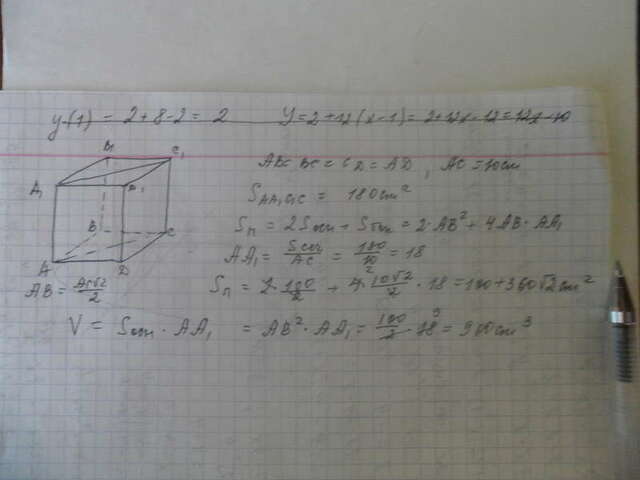 y(1) = 2+8-2= 2 y=2+12(x-1)=2+12x-12=12x-10
B₁ C₁
A₁ D₁
B C
A D
AB= BC = CD = AD , AC = 10см
S AA₁C₁C = 180см²
Sп = 2Sосн + Sбок = 2·AB² + 4AB·AA₁
AA₁ = Sсеч/AC = 180/10 = 18
AB = AC√2/2 Sп = 2·100/2 + 4·10√2/2 · 18 = 100+360√2см²
V = Sосн · AA₁ = AB² · AA₁ = 100/2 · 18 = 900см³